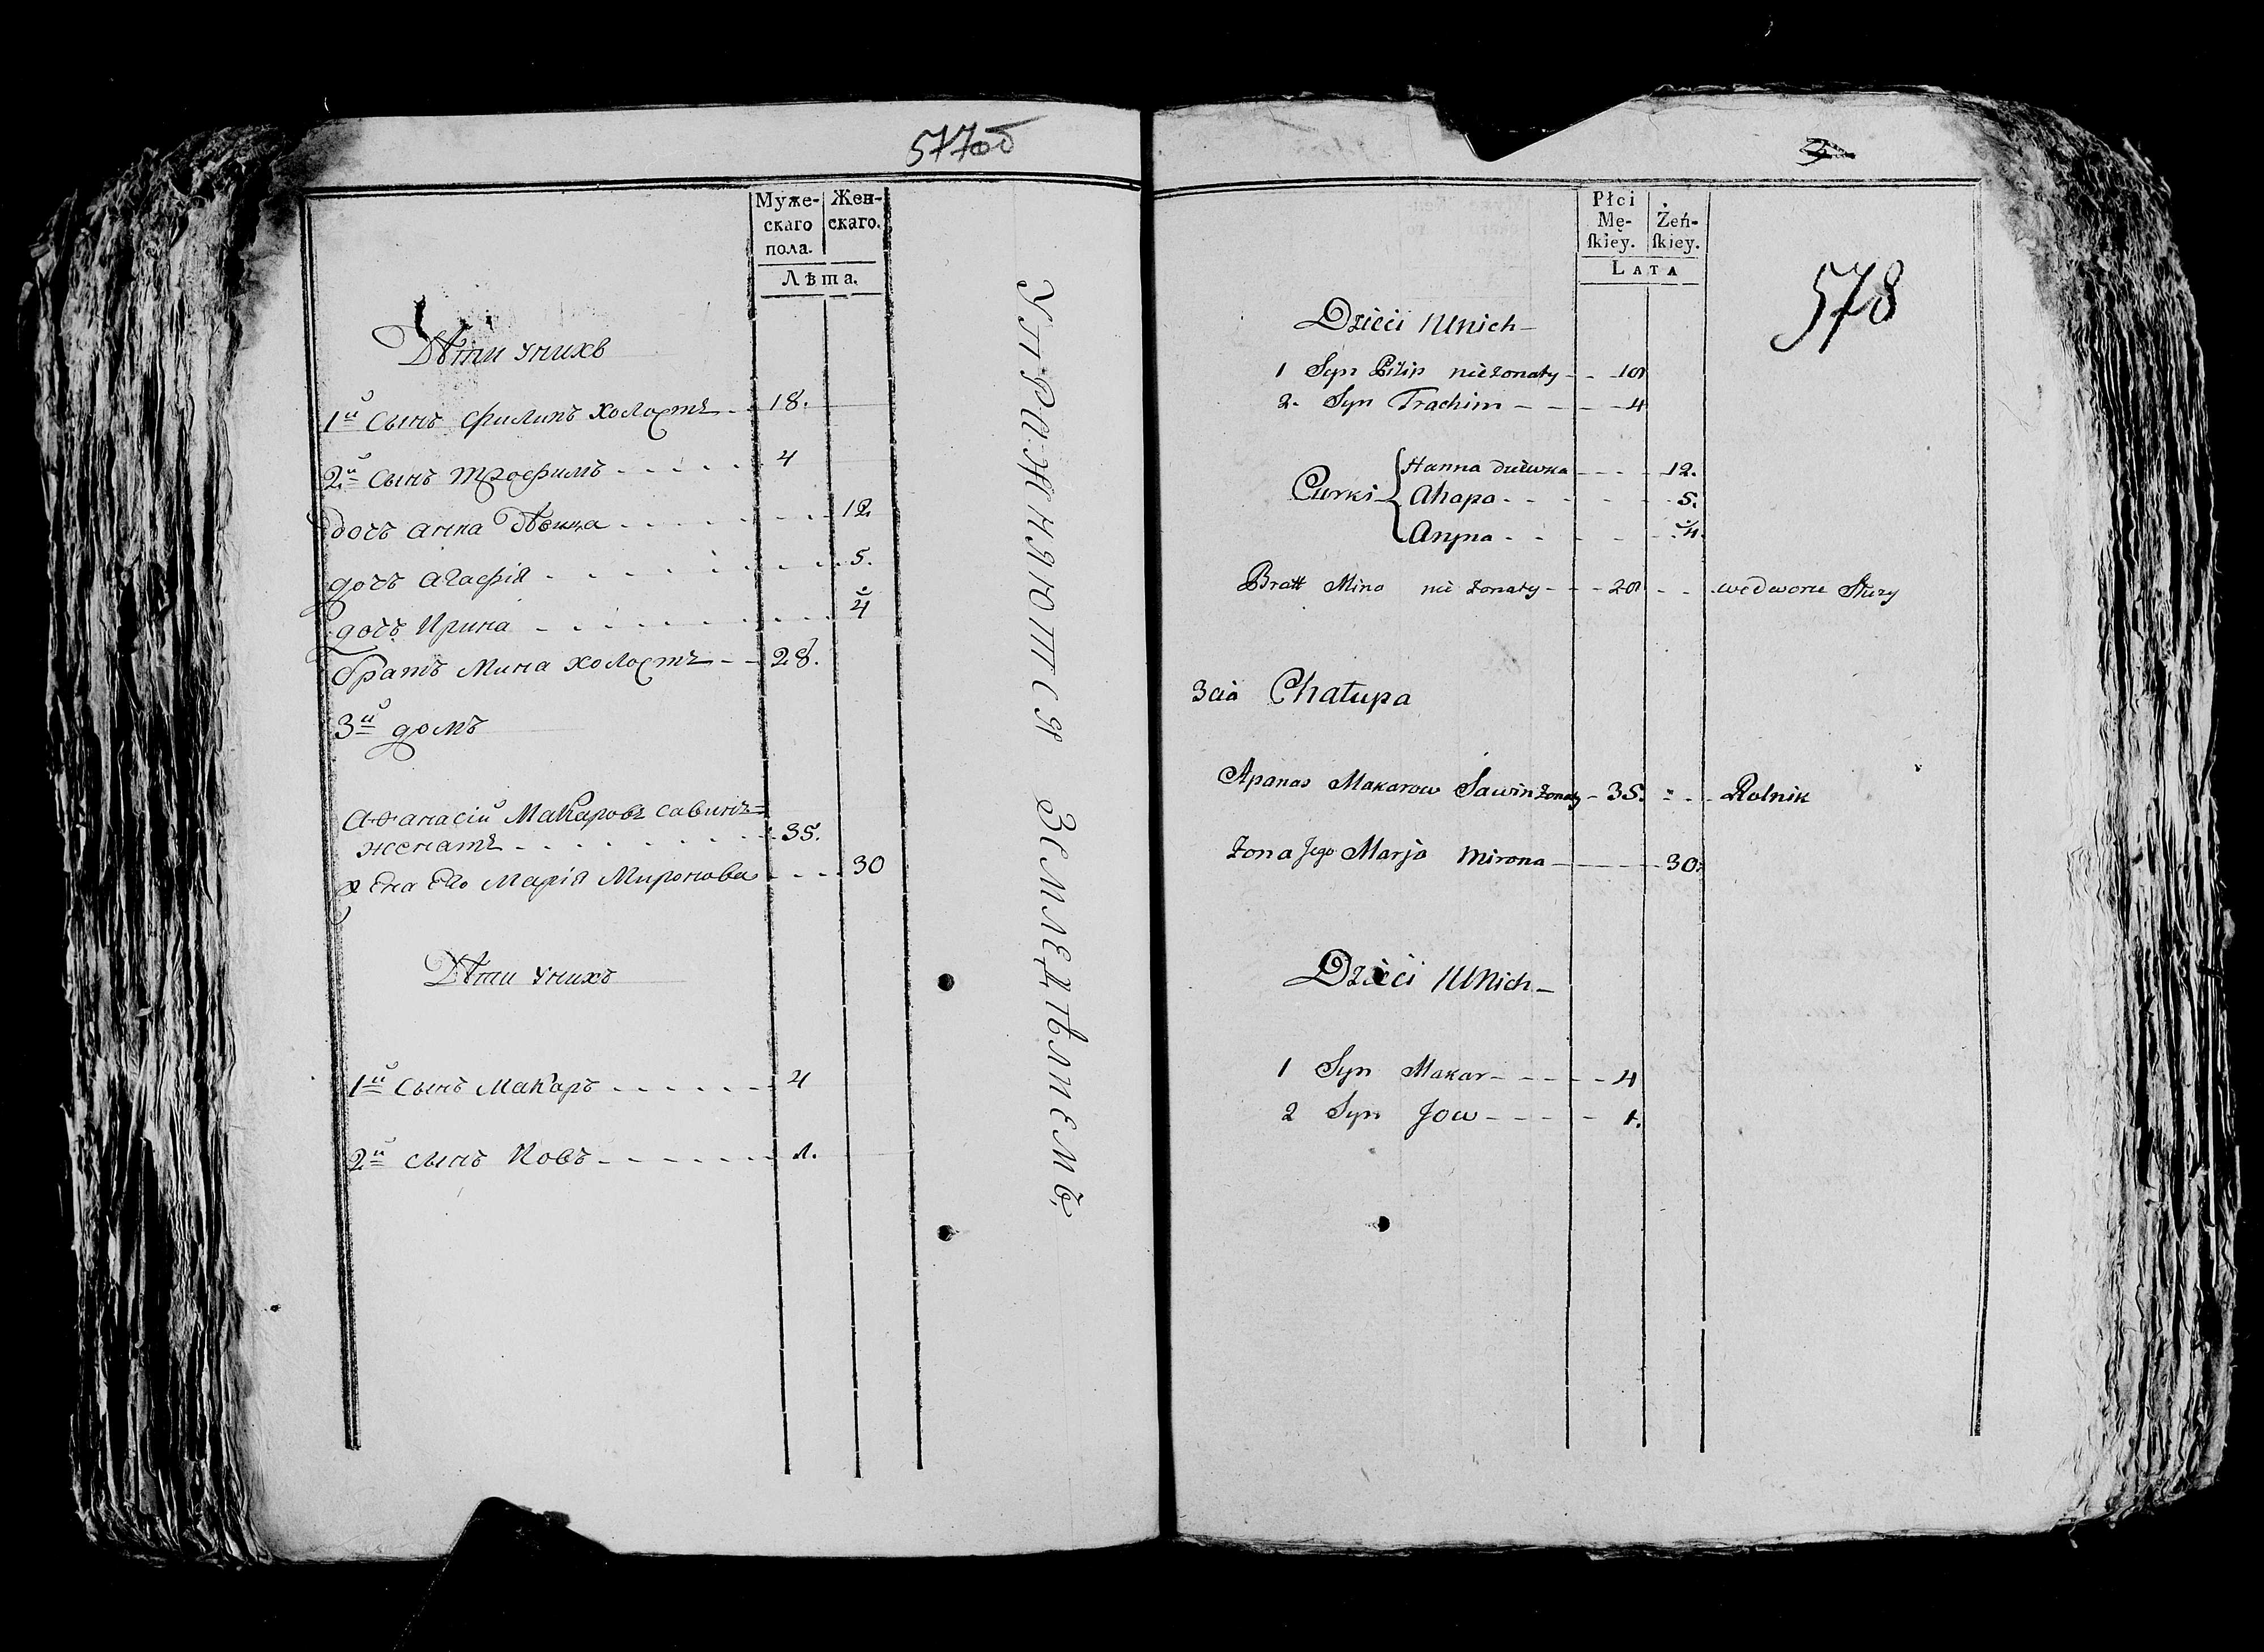 577об
Муже-
скаго
пола.
Жен-
скаго.
Лѣта.
Дѣти унихъ
1й Сынъ Филипъ холостъ - - 18.
2й Сынъ Трофимъ - - - - - 4
дочъ анна Дѣвица - - - - - 12
дочъ агафія - - - - - 5.
дочъ Ирина - - - - - 4
братъ Мина холостъ - - 28.
3й домъ
Афанасій Макаровъ савинъ
женатъ - - - - - 35.
жена Его Марія Миронова - - - 30
Дѣти унихъ
1й Сынъ Макаръ - - - - - 4
2й сынъ Иовъ - - - - - 1.
Упражняются Земледѣлиемъ
578
Płci
Mę-
ſkiey.
Żeń-
ſkiey.
LATA
Dzieci U Nich -
1 Syn Pilip nieżonaty - - 18
2. Syn Trachim - - - - 4
Curki
Hanna dziewka - - - 12.
Ahapa - - - - - 5.
Aryna - - - - - 4.
Bratt Mina nie żonaty - - - 28 - - we dworu Służy
3cia Chałupa
Apanas Makarow Sawin żonaty - 35. - - Rolnik
żona Jego Marja Mirona - - - 30.
Dzieci U Nich -
1 Syn Makar - - - - - 4
2 Syn Jow - - - - - 1.